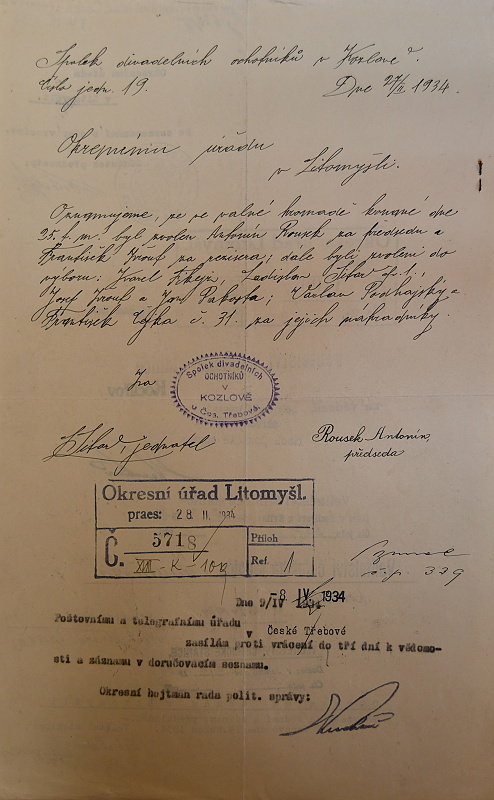 Spolek divadelních ochotníků v Kozlově.
Číslo jedn. 19. Dne 27/II. 1934.
Okresnímu úřadu
v Litomyšli.
Oznamujeme, že ve valné hromadě konané dne
25. t. m. byl zvolen Antonín Rousek za předsedu a
František za režiséra; dále byli zvoleni do
výboru: Karel Ladislav č. 1.,
Josef a Josef Václav Podhajský a
František č. 31. za jejich náhradníky.
Za
Spolek divadelních
OCHOTNÍKŮ
V
KOZLOVĚ
u Čes. Třebové.
jednatel
Rousek Antonín,
předseda
Okresní úřad Litomyšl.
praes: 28 II. 1934
Č. 5718 Příloh
XVII-K-109 Ref. 1
č.p. 339
Dne 9/IV 1934 -8 IV 1934
Poštovnímu a telegrafnímu úřadu
v České Třebové
zasílám proti vrácení do tří dní k vědomo-
sti a záznamu v doručovacím seznamu.
Okresní hejtman rada polit. správy: